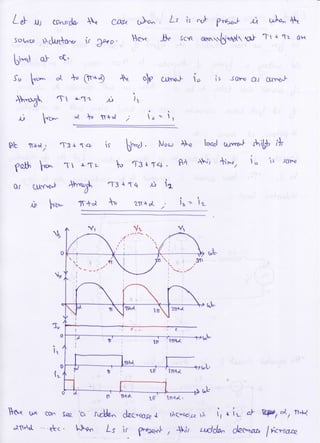 Let us consider the case when Ls is not present ie when the
source inductance is zero. Here the scr T1 + T2 are
fired at α.
So from α to (π+α) the o/p current io is same as current
through T1 + T2 ie i1
ie from α to π+α ; io = i1
At π+α, T3 + T4 is fired. Now the load current shifts its
path from T1 + T2 to T3 + T4. At this time, io is same
as current through T3 + T4 ie i2
ie from π+α to 2π+α ; io = i2
Vs V1 V2 V1
0 π 2π 3π ωt
Vo
0 α π π+α 2π 2π+α ωt
Io
0 α π 2π 2π+α ωt
i1
0 π+α 2π+α ωt
i2
0 α π π+α 2π 2π+α ωt
Here we can see a sudden decrease & increase in i1 + i2 at α, π+α
2π+α - etc. When Ls is present, this sudden decrease / increase